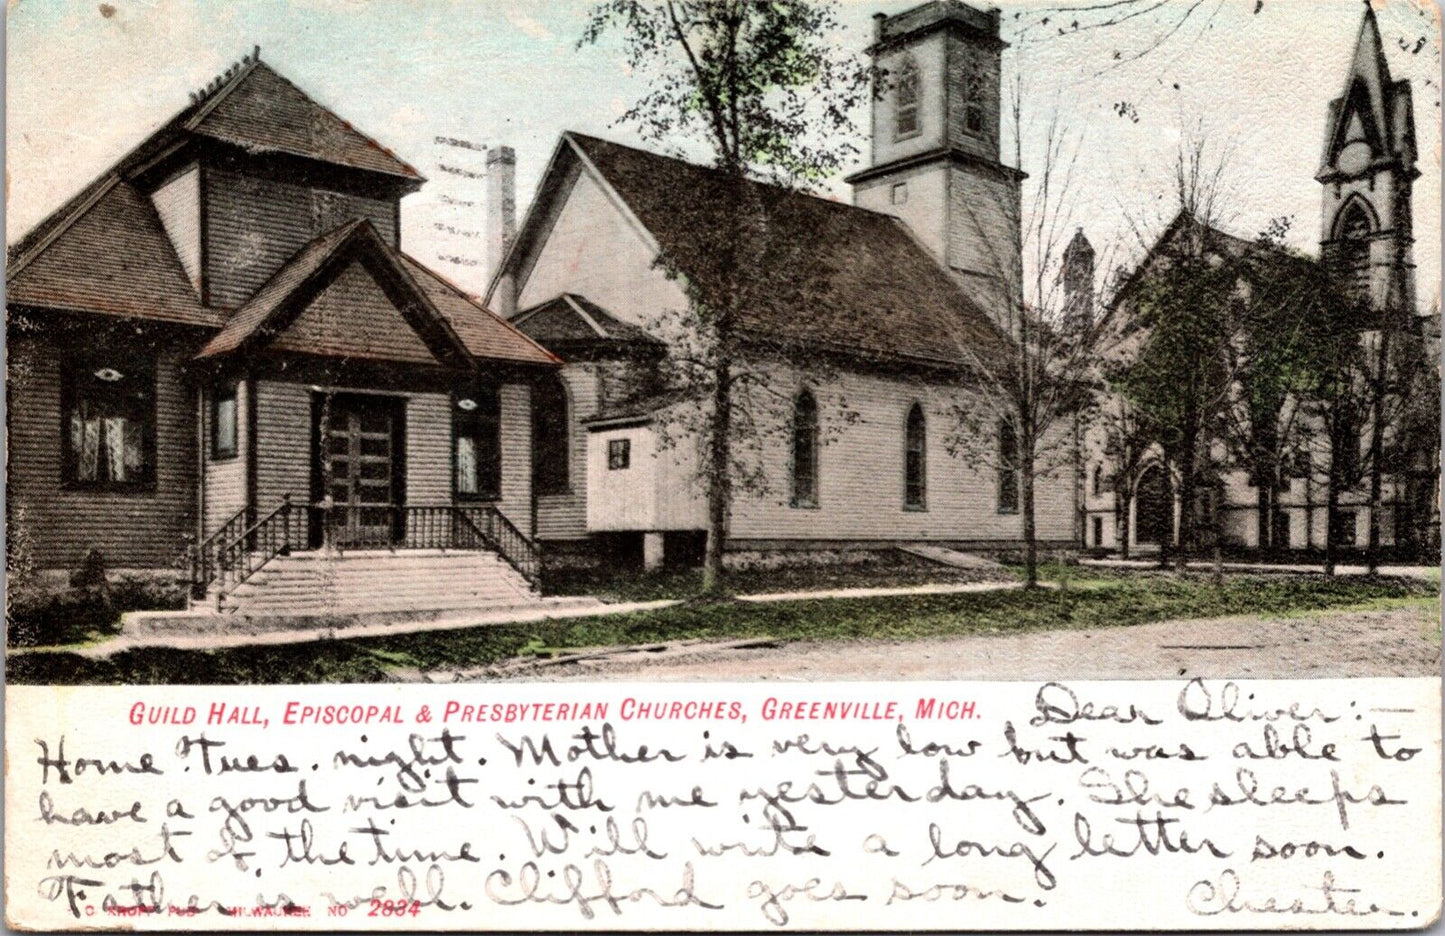 GUILD HALL, EPISCOPAL & PRESBYTERIAN CHURCHES, GREENVILLE, MICH.
Dear Oliver:—
Home Tues. night. Mother is very low but was able to
have a good visit with me yesterday. She sleeps
most of the time. Will write a long letter soon.
Father is well. Clifford goes soon.
Chester.
C KROPP PUB MILWAUKEE NO 2834